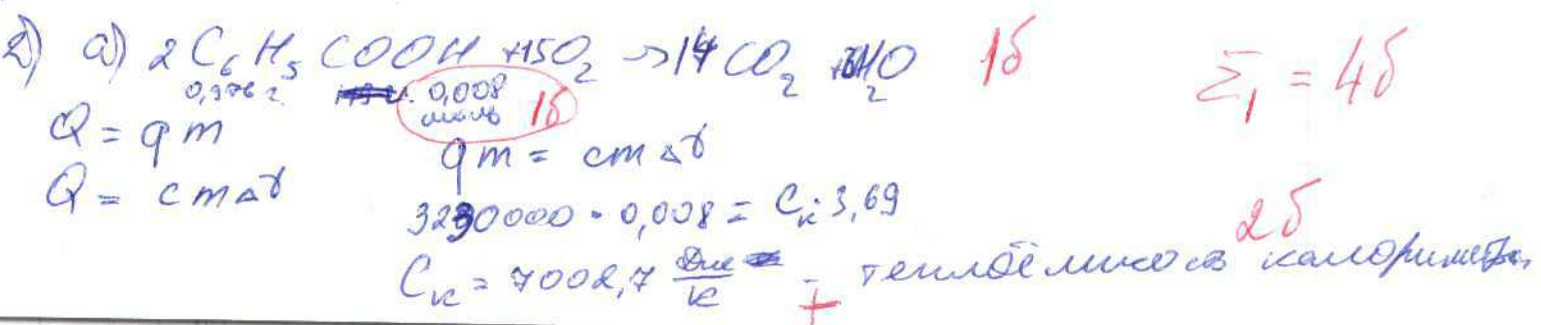 2) а) 2 C₆H₅COOH + 15O₂ → 14CO₂ + 6H₂O 1б Σ₁ = 4б
0,976 г. 0,008
моль 1б
Q = qm qm = cm Δt
Q = cmΔt 3230000 · 0,008 = Cк · 3,69
2б
Cк = 7002,7 Дж/К - теплоёмкость калориметра
+